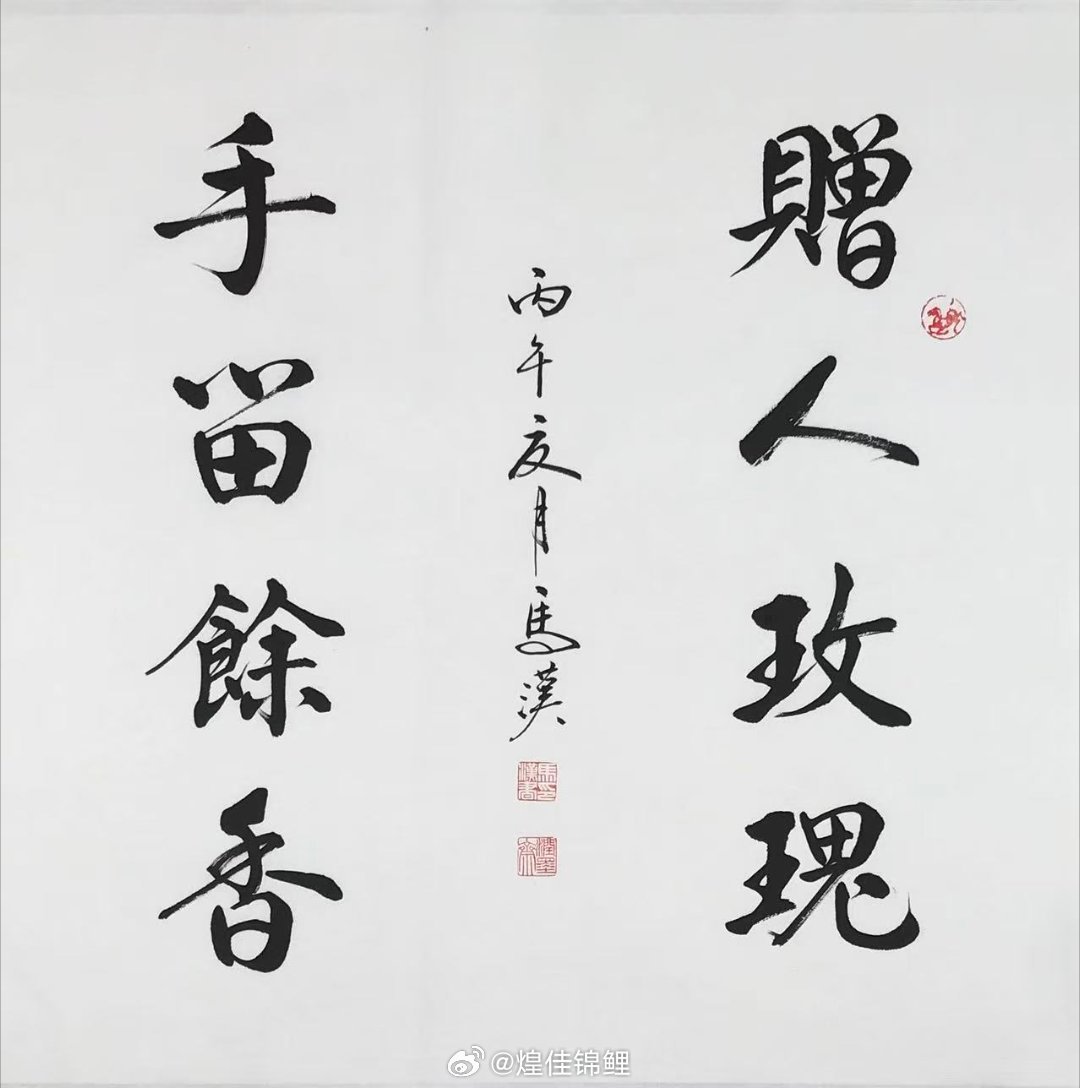 贈人玫瑰
手留餘香
丙午夏月馬漢
@煌佳锦鲤